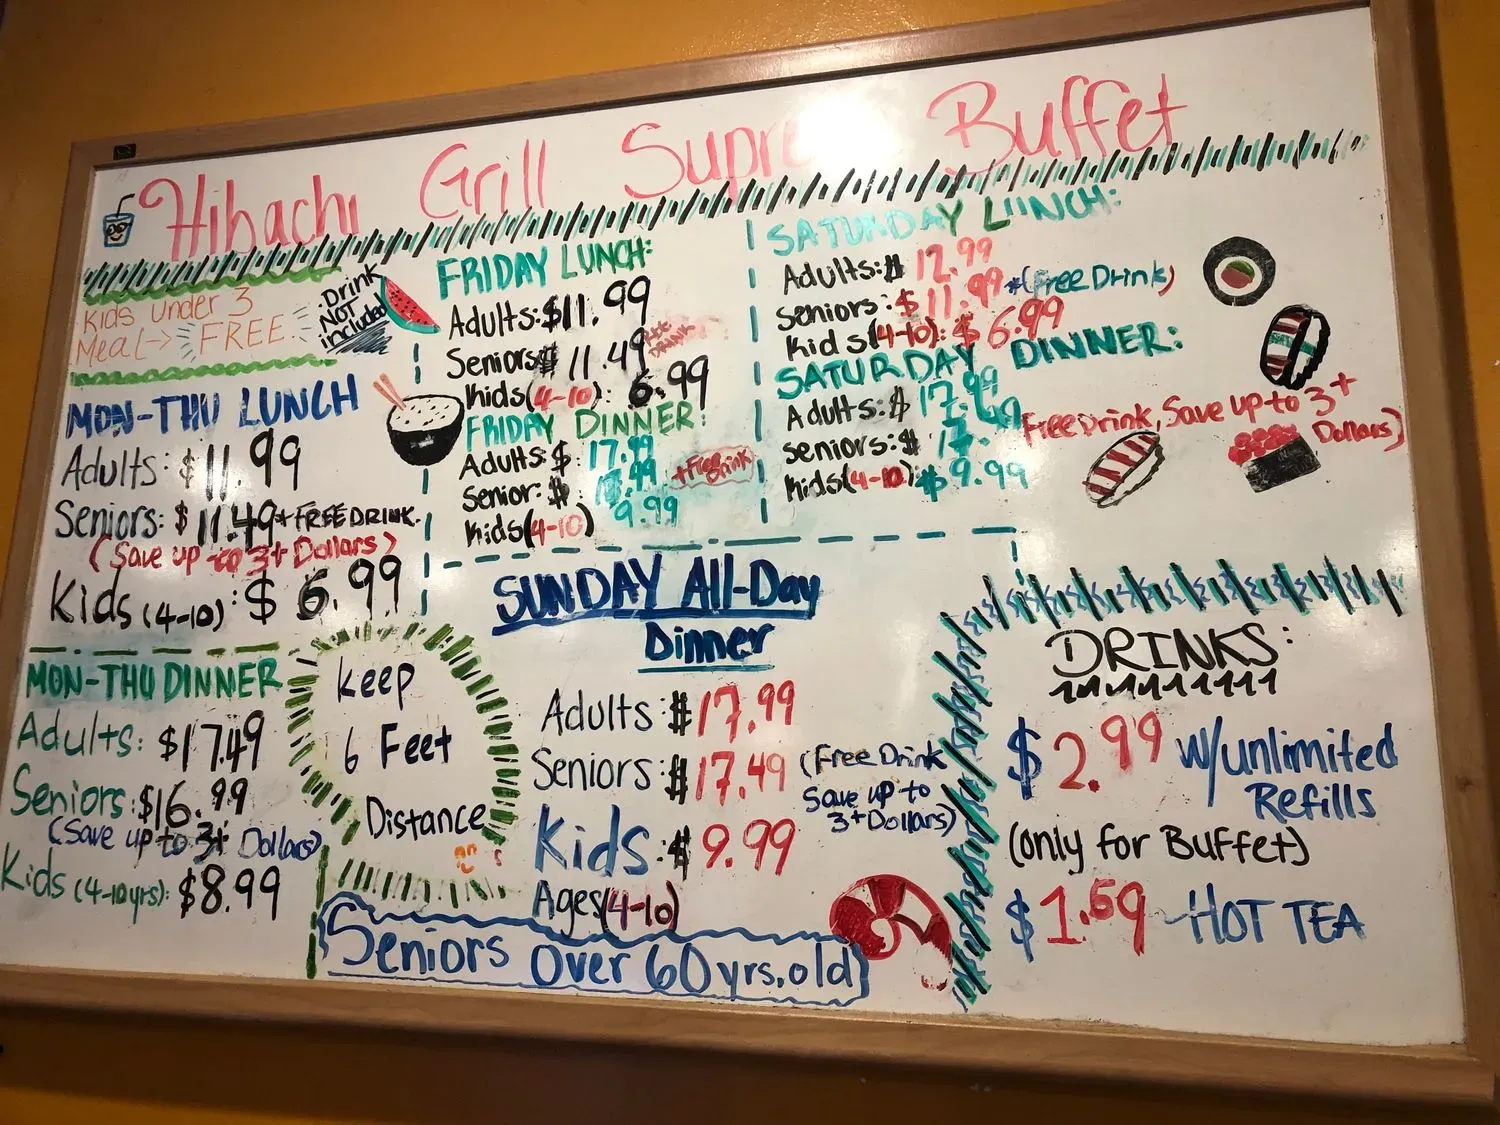 Hibachi Grill Supre Buffet
Kids under 3
Meal-> FREE
Drink
NOT
included
MON-THU LUNCH
Adults: $11.99
Seniors: $11.49 + FREE DRINK.
(Save up to 3+ Dollars)
Kids (4-10): $6.99
MON-THU DINNER
Adults: $17.49
Seniors: $16.99
(Save up to 3+ Dollars)
Kids (4-10yrs): $8.99
FRIDAY LUNCH:
Adults: $11.99
Seniors $11.49
DRINK
Kids (4-10): 6.99
FRIDAY DINNER:
Adults: $17.99
Senior: $
+Free Drink
Kids (4-10) 9.99
SATURDAY LUNCH:
Adults: $12.99
Seniors: $11.99 *(Free Drink)
Kids (4-10): $6.99
SATURDAY DINNER:
Adults: $17.99
Seniors: $17.49
Free Drink, Save up to 3+
Dollars)
Kids (4-10): $9.99
Keep
6 Feet
Distance
SUNDAY All-Day
Dinner
Adults: $17.99
Seniors: $17.49
(Free Drink
Save up to
3+ Dollars)
Kids: $9.99
Ages (4-10)
Seniors Over 60 yrs. old
DRINKS:
$2.99 w/unlimited
Refills
(only for Buffet)
$1.69 -HOT TEA